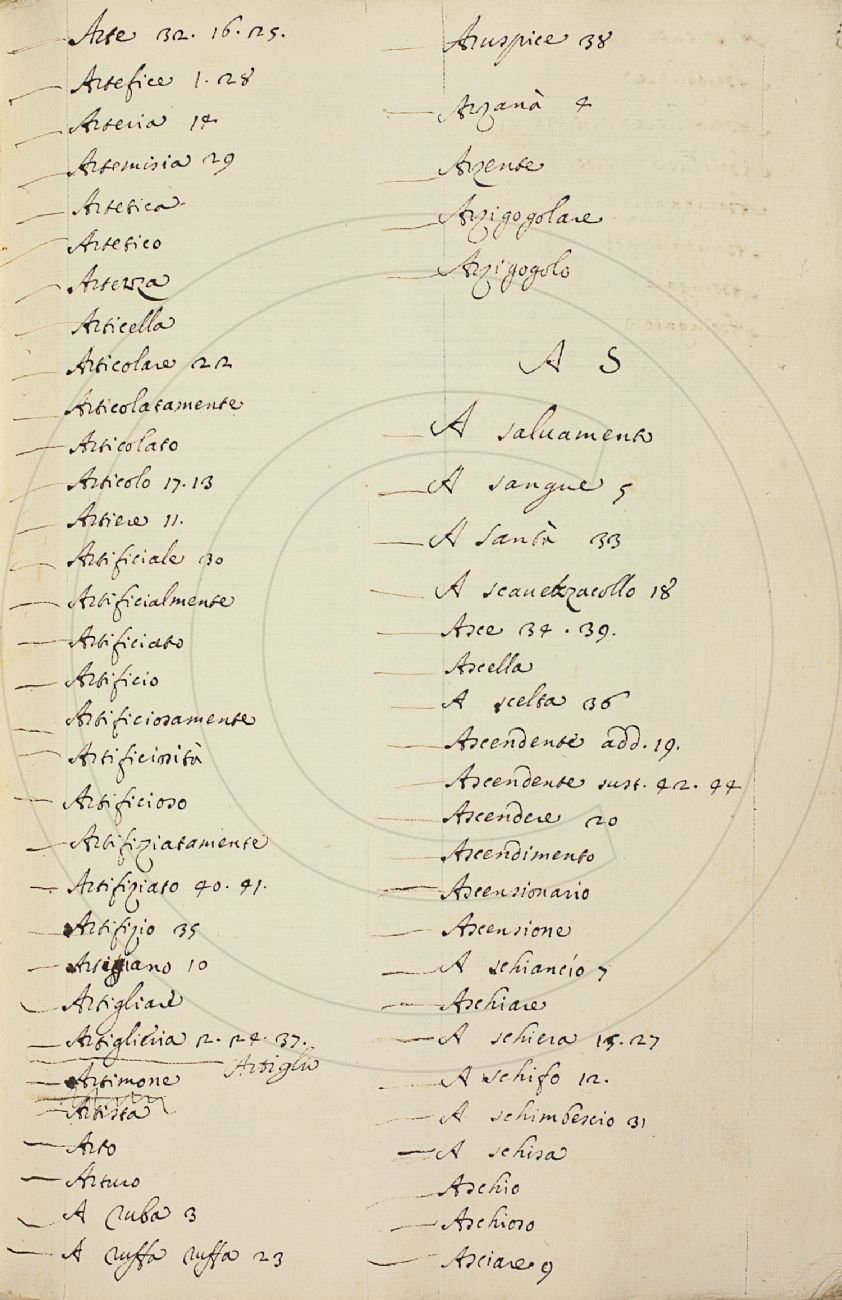 Arte 32. 16. 25.
Artefice 1. 28
Arteria 14
Artemisia 29
Artetica
Artetico
Artezza
Articella
Articolare 22
Articolatamente
Articolato
Articolo 17. 13
Artiere 11.
Artificiale 30
Artificialmente
Artificiato
Artificio
Artificiosamente
Artificiosità
Artificioso
Artifiziatamente
Artifiziato 40. 41.
Artifizio 35
Artigiano 10
Artigliare
Artiglieria 2. 24. 37.
Artiglio
Artimone
Artista
Arto
Arturo
A ruba 3
A ruffa ruffa 23
Aruspice 38
Arzanà 4
Arzente
Arzigogolare
Arzigogolo
A S
A saluamento
A sangue 5
A santà 33
A scauezzacollo 18
Asce 34. 39.
Ascella
A scelta 36
Ascendente add. 19.
Ascendente sust. 42. 44
Ascendere 20
Ascendimento
Ascensionario
Ascensione
A schiancío 7
Aschiare
A schiera 15. 27
A schifo 12.
A schimbescio 31
A schisa
Aschio
Aschioso
Asciare 9